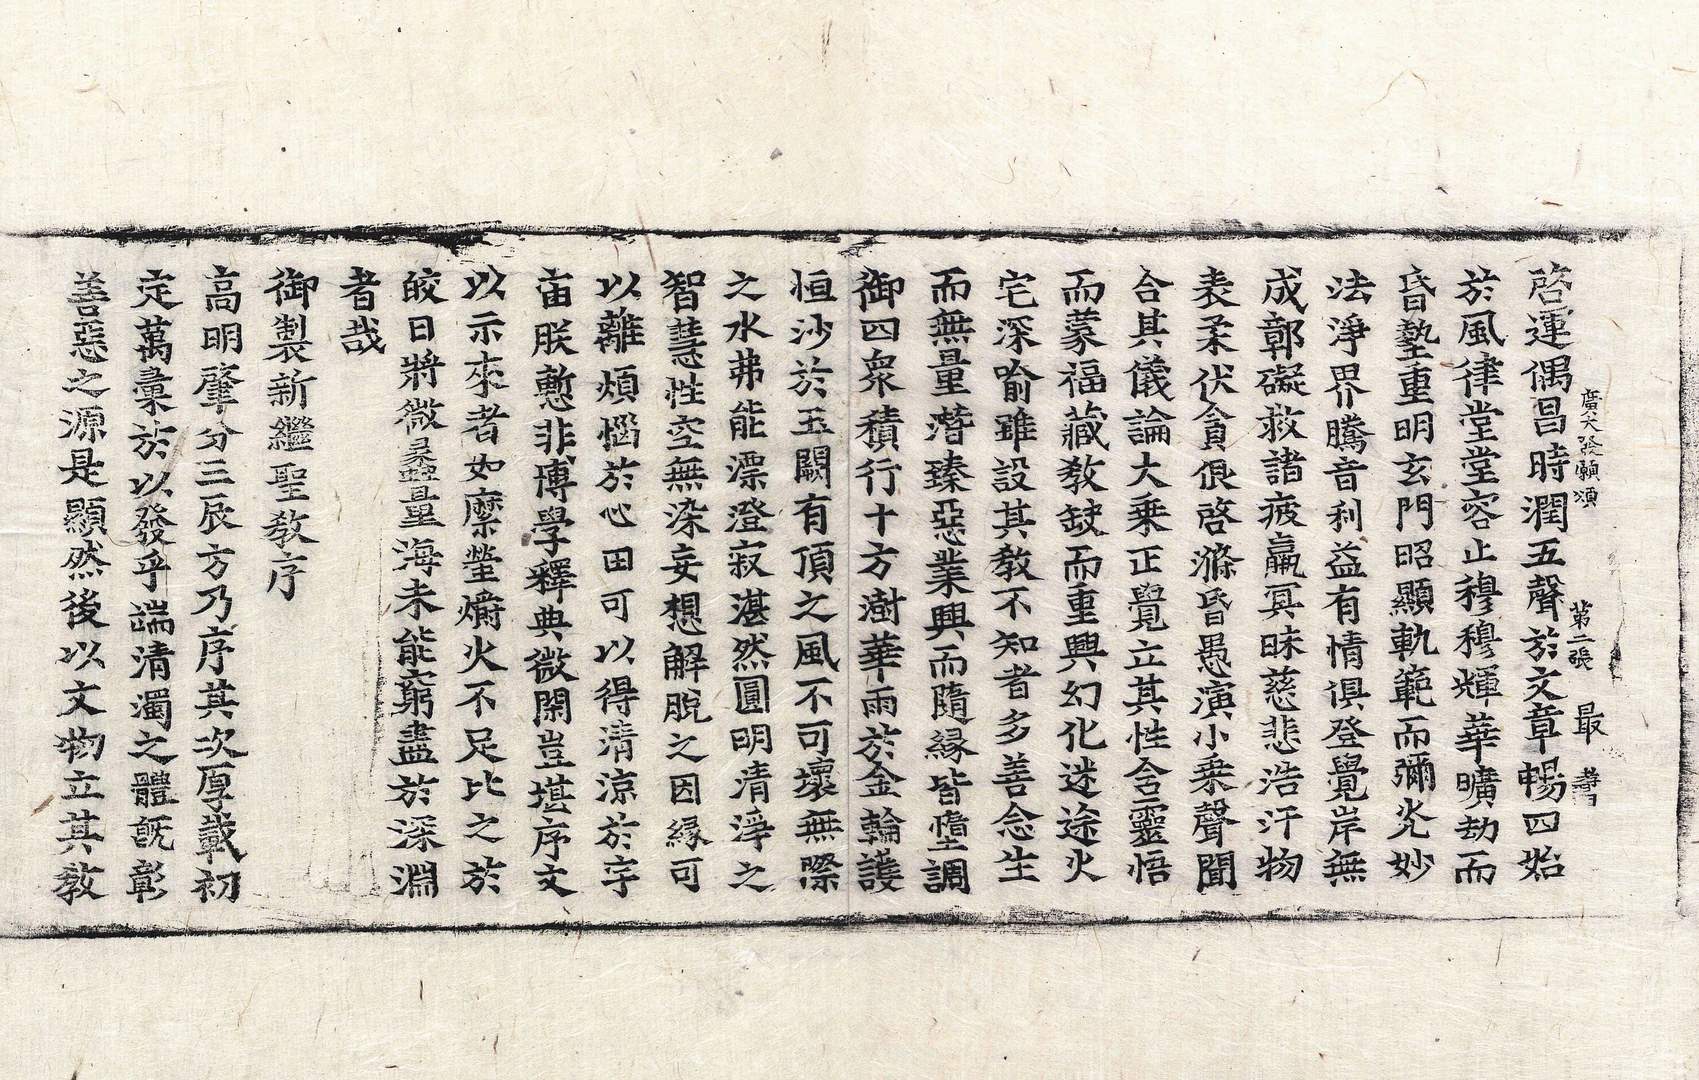 廣大發願頌 第二張 最
啓運偶昌時潤五聲於文章暢四始
於風律堂堂容止穆穆輝華曠劫而
昏蟄重明玄門昭顯軌範而彌光妙
法淨界騰音利益有情俱登覺岸無
成鄣礙救諸疲羸冥昧慈悲浩汗物
表柔伏貪佷啓滌昏愚演小乘聲聞
合其儀論大乘正覺立其性含靈悟
而蒙福藏教缺而重興幻化迷途火
宅深喻雖設其教不知者多善念生
而無量潛臻惡業興而隨緣皆墮調
御四衆積行十方澍華雨於金輪護
恒沙於玉闕有頂之風不可壞無際
之水弗能漂澄寂湛然圓明清淨之
智慧性空無染妄想解脫之因緣可
以離煩惱於心田可以得清涼於宇
宙朕慙非博學釋典微閑豈堪序文
以示來者如縻螢爝火不足比之於
皎日將微蠡量海未能窮盡於深淵
者哉
御製新繼聖教序
高明肇分三辰方乃序其次厚載初
定萬彙於以發乎端清濁之體旣彰
善惡之源是顯然後以文物立其教